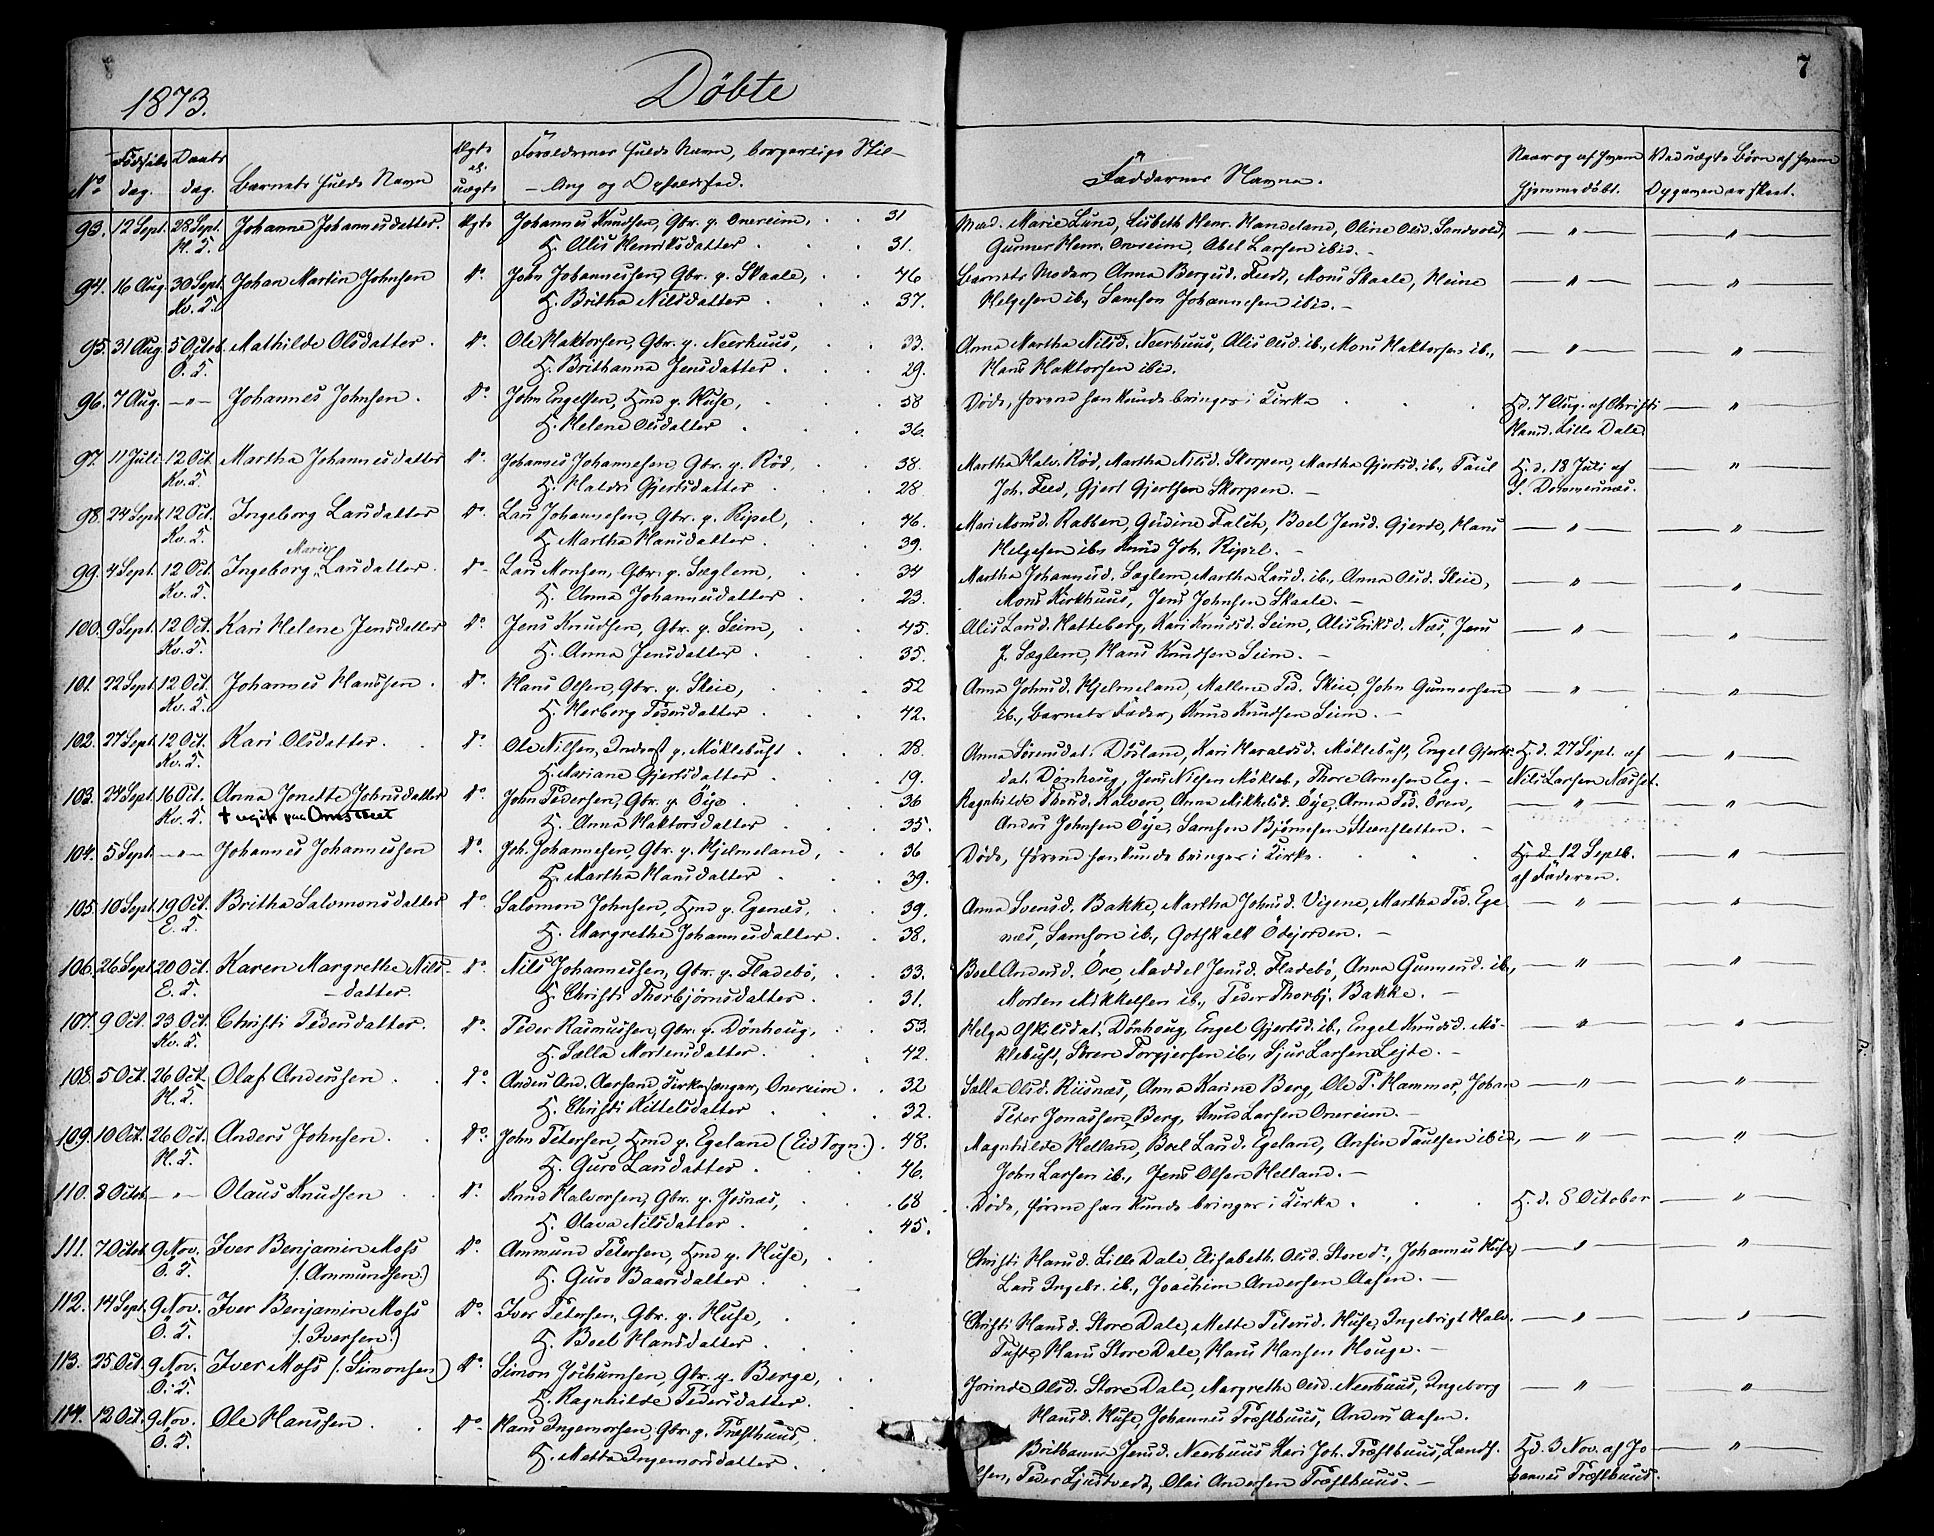 7
1873.
Döbte
No
Födsels dag.
Daabs dag.
Barnets fulde Navn
Ægte el. uægte
Forældrenes fulde Navn, borgerlige Stilling og Opholdssted.
Faddernes Navne.
Naar og af hvem hjemmedöbt.
Ved uægte Börn af hvem Opgaven er skeet.
93. 12 Sept. 28 Sept. H. K. Johanne Johannesdatter. Ægte Johannes Knudsen, Gbr. p. Onereim, 31
H. Alis Henriksdatter 31.
Mad. Marie Lund, Lisbeth Henr. Handeland, Oline Olsd. Sandvold,
Gunner Henr. Onereim, Abel Larsen ibid. —
94. 16 Aug. 30 Sept. Kv. K. Johan Martin Johnsen do John Johannessen, Gbr. p. Skaale, 46
H. Britha Nilsdatter 37.
Barnets Moder, Anna Bergesd. Feed, Mons Skaale, Heine
Helgesen ib., Samson Johannesen ibid. —
95. 31 Aug. 5 Octob. Ö. K. Mathilde Olsdatter. do Ole Haktorsen, Gbr. p. Neerhuus, 33.
H. Brithanna Jensdatter 29.
Anna Martha Nilsd. Neerhuus, Alis Olsd. ib., Mons Haktorsen ib.,
Hans Haktorsen ibid.
96. 7 Aug. — " — Johannes Johnsen. do John Engelsen, Hmd p. Huse, 58
H. Helene Olsdatter 36.
Döde, förend han kunde bringes i Kirke
H. d. 7 Aug. af Christi
Hansd. Lille Dale.
97. 11 Juli 12 Oct. Kv. K. Martha Johannesdatter do Johannes Johannesen, Gbr. p. Röd, 38.
H. Haldis Gjertsdatter 28
Martha Halv. Röd, Martha Nilsd. Skorpen, Martha Gjertsd. ib., Paul
Joh. Feed, Gjert Gjertsen Skorpen. —
H. d. 18 Juli af
J. Dommersnæs.
98. 24 Sept. 12 Oct. Kv. K. Ingeborg Larsdatter do Lars Johannesen, Gbr. p. Ripel, 46.
H. Martha Hansdatter 39.
Mari Monsd. Rabben, Gudine Falch, Boel Jensd. Gjerde, Hans
Helgesen ib., Knud Joh. Ripel. —
99. 4 Sept. 12 Oct. Kv. K. Ingeborg Marie Larsdatter. do Lars Monsen, Gbr. p. Sæglem, 34
H. Anna Johannesdatter 23.
Martha Johannesd. Sæglem, Martha Larsd. ib., Anna Olsd. Skeie,
Mons Kirkhuus, Jens Johnsen Skaale. —
100. 9 Sept. 12 Oct. Kv. K. Kari Helene Jensdatter do Jens Knudsen, Gbr. p. Seim, 45.
H. Anna Jensdatter 35.
Alis Larsd. Hatteberg, Kari Knudsd. Seim, Alis Eriksd. Næs, Jens
J. Sæglem, Hans Knudsen Seim. —
101. 22 Sept. 12 Oct. Kv. K. Johannes Hanssen. do Hans Olsen, Gbr. p. Skeie, 52
H. Herborg Pedersdatter 42.
Anna Johnsd. Hjelmeland, Mallene Ped. Skeie, John Gunnersen
ib., Barnets Fader, Knud Knudsen Seim. —
102. 27 Sept. 12 Oct. Kv. K. Kari Olsdatter. do Ole Nilsen, Inderst p. Möklebust 28.
H. Mariane Gjertsdatter 19.
Anna Sörensdat. Düsland, Kari Haraldsd. Möklebust, Engel Gjerts-
dat. Dönhoug, Jens Nilsen Mökleb., Thore Arnesen Eeg. —
H. d. 27 Sept. af
Nils Larsen Næsset.
103. 24 Sept. 16 Oct. Kv. K. Anna Jonette Johnsdatter do John Pedersen, Gbr. p. Öye 36
H. Anna Haktorsdatter 35.
Ragnhilde Thorsd. Kalven, Anna Mikkelsd. Öye, Anna Ped. Ören,
Anders Johnsen Öye, Samson Björnsen Steensletten. —
104. 5 Sept. — " — Johannes Johannessen do Joh. Johannesen, Gbr. p. Hjelmeland, 36
H. Martha Hansdatter 39.
Döde, förend han kunde bringes i Kirke.
H. d. 12 Septb.
af Faderen.
105. 10 Sept. 19 Oct. E. K. Britha Salomonsdatter do Salomon Johnsen, Hmd p. Egenæs, 39.
H. Margrethe Johannesdatter. 38.
Anna Svensd. Bakke, Martha Johnsd. Vigene, Martha Ped. Ege
næs, Samson ib., Gotskalk Ödejorden. —
106. 26 Sept. 20 Oct. E. K. Karen Margrethe Nils-
datter. do Nils Johannessen, Gbr. p. Fladebö, 33.
H. Christi Thorbjörnsdatter 31.
Boel Andersd. Öre, Maddel Jensd. Fladebö, Anna Gunnersd. ib.,
Morten Mikkelsen ib., Peder Thorbj. Bakke. —
107. 9 Oct. 23 Oct. Kv. K. Christi Pedersdatter. do Peder Rasmussen, Gbr. p. Dönhoug, 53.
H. Sælla Mortensdatter 42.
Helga Oskilsdat. Dönhoug, Engel Gjertsd. ib., Engel Knudsd. Mö-
klebust, Sören Torgjersen ib., Sjur Larsen Lejte. —
108. 5 Oct. 26 Oct. H. K. Olaf Andersen do Anders And. Aarsand, Kirkesanger, Onereim. 32
H. Christi Kittelsdatter 32.
Sælla Olsd. Riisnæs, Anna Karine Berg, Ole P. Hammer, Johan
Peter Jonassen Berg, Knud Larsen Onereim. —
109. 10 Oct. 26 Oct. H. K. Anders Johnsen. do John Petersen, Hmd p. Egeland (Eid Sogn). 48.
H. Guro Larsdatter 46.
Magnhilde Helland, Boel Larsd. Egeland, Ansin Paulsen ibid,
John Larsen ib., Jens Olsen Helland. —
110. 8 Octob. — " — Olaus Knudsen do Knud Halvorsen, Gbr. p. Jesnæs, 68
H. Olava Nilsdatter 45.
Döde, förend han kunde bringes i Kirke
H. d. 8 October
111. 7 Octob. 9 Nov. Ö. K. Iver Benjamin Moss
(: Ammundsen :) do Ammund Petersen, Hmd p. Huse,
H. Guro Baarsdatter
Christi Hansd. Lille Dale, Elisabeth Olsd. Store do, Johannes Huse,
Lars Ingebr. ib., Joachim Andersen Aasen. —
112. 14 Sept. 9 Nov. Ö. K. Iver Benjamin Moss
(: Iversen :) do Iver Petersen, Gbr. p. Huse,
H. Boel Hansdatter
Christi Hansd. Store Dale, Mette Petersd. Huse, Ingebrigt Halv.
Tufte, Hans Store Dale, Hans Hansen Houge. —
113. 25 Oct. 9 Nov. Ö. K. Iver Moss (: Simonsen :) do Simon Jochumsen, Gbr. p. Berge,
H. Ragnhilde Pedersdatter.
Jorinde Olsd. Store Dale, Margrethe Olsd. Neerhuus, Ingeborg
Hansd. Huse, Johannes Træsthuus, Anders Aasen.
114. 12 Oct. 9 Nov. Ö. K. Ole Hanssen. do Hans Ingemorsen, Gbr. p. Træsthuus,
H. Mette Ingemorsdatter.
Brithanna Jensd. Neerhuus, Kari Joh. Træsthuus,
Peder Ljustvedt, Olai Andersen Træsthuus. —
H. d. 3 Nov. af Jo
hannes Træsthuus.